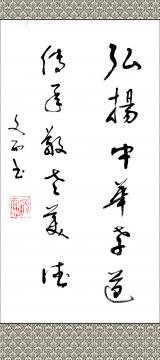 弘揚中華孝道
傳承敬老美德
文西书